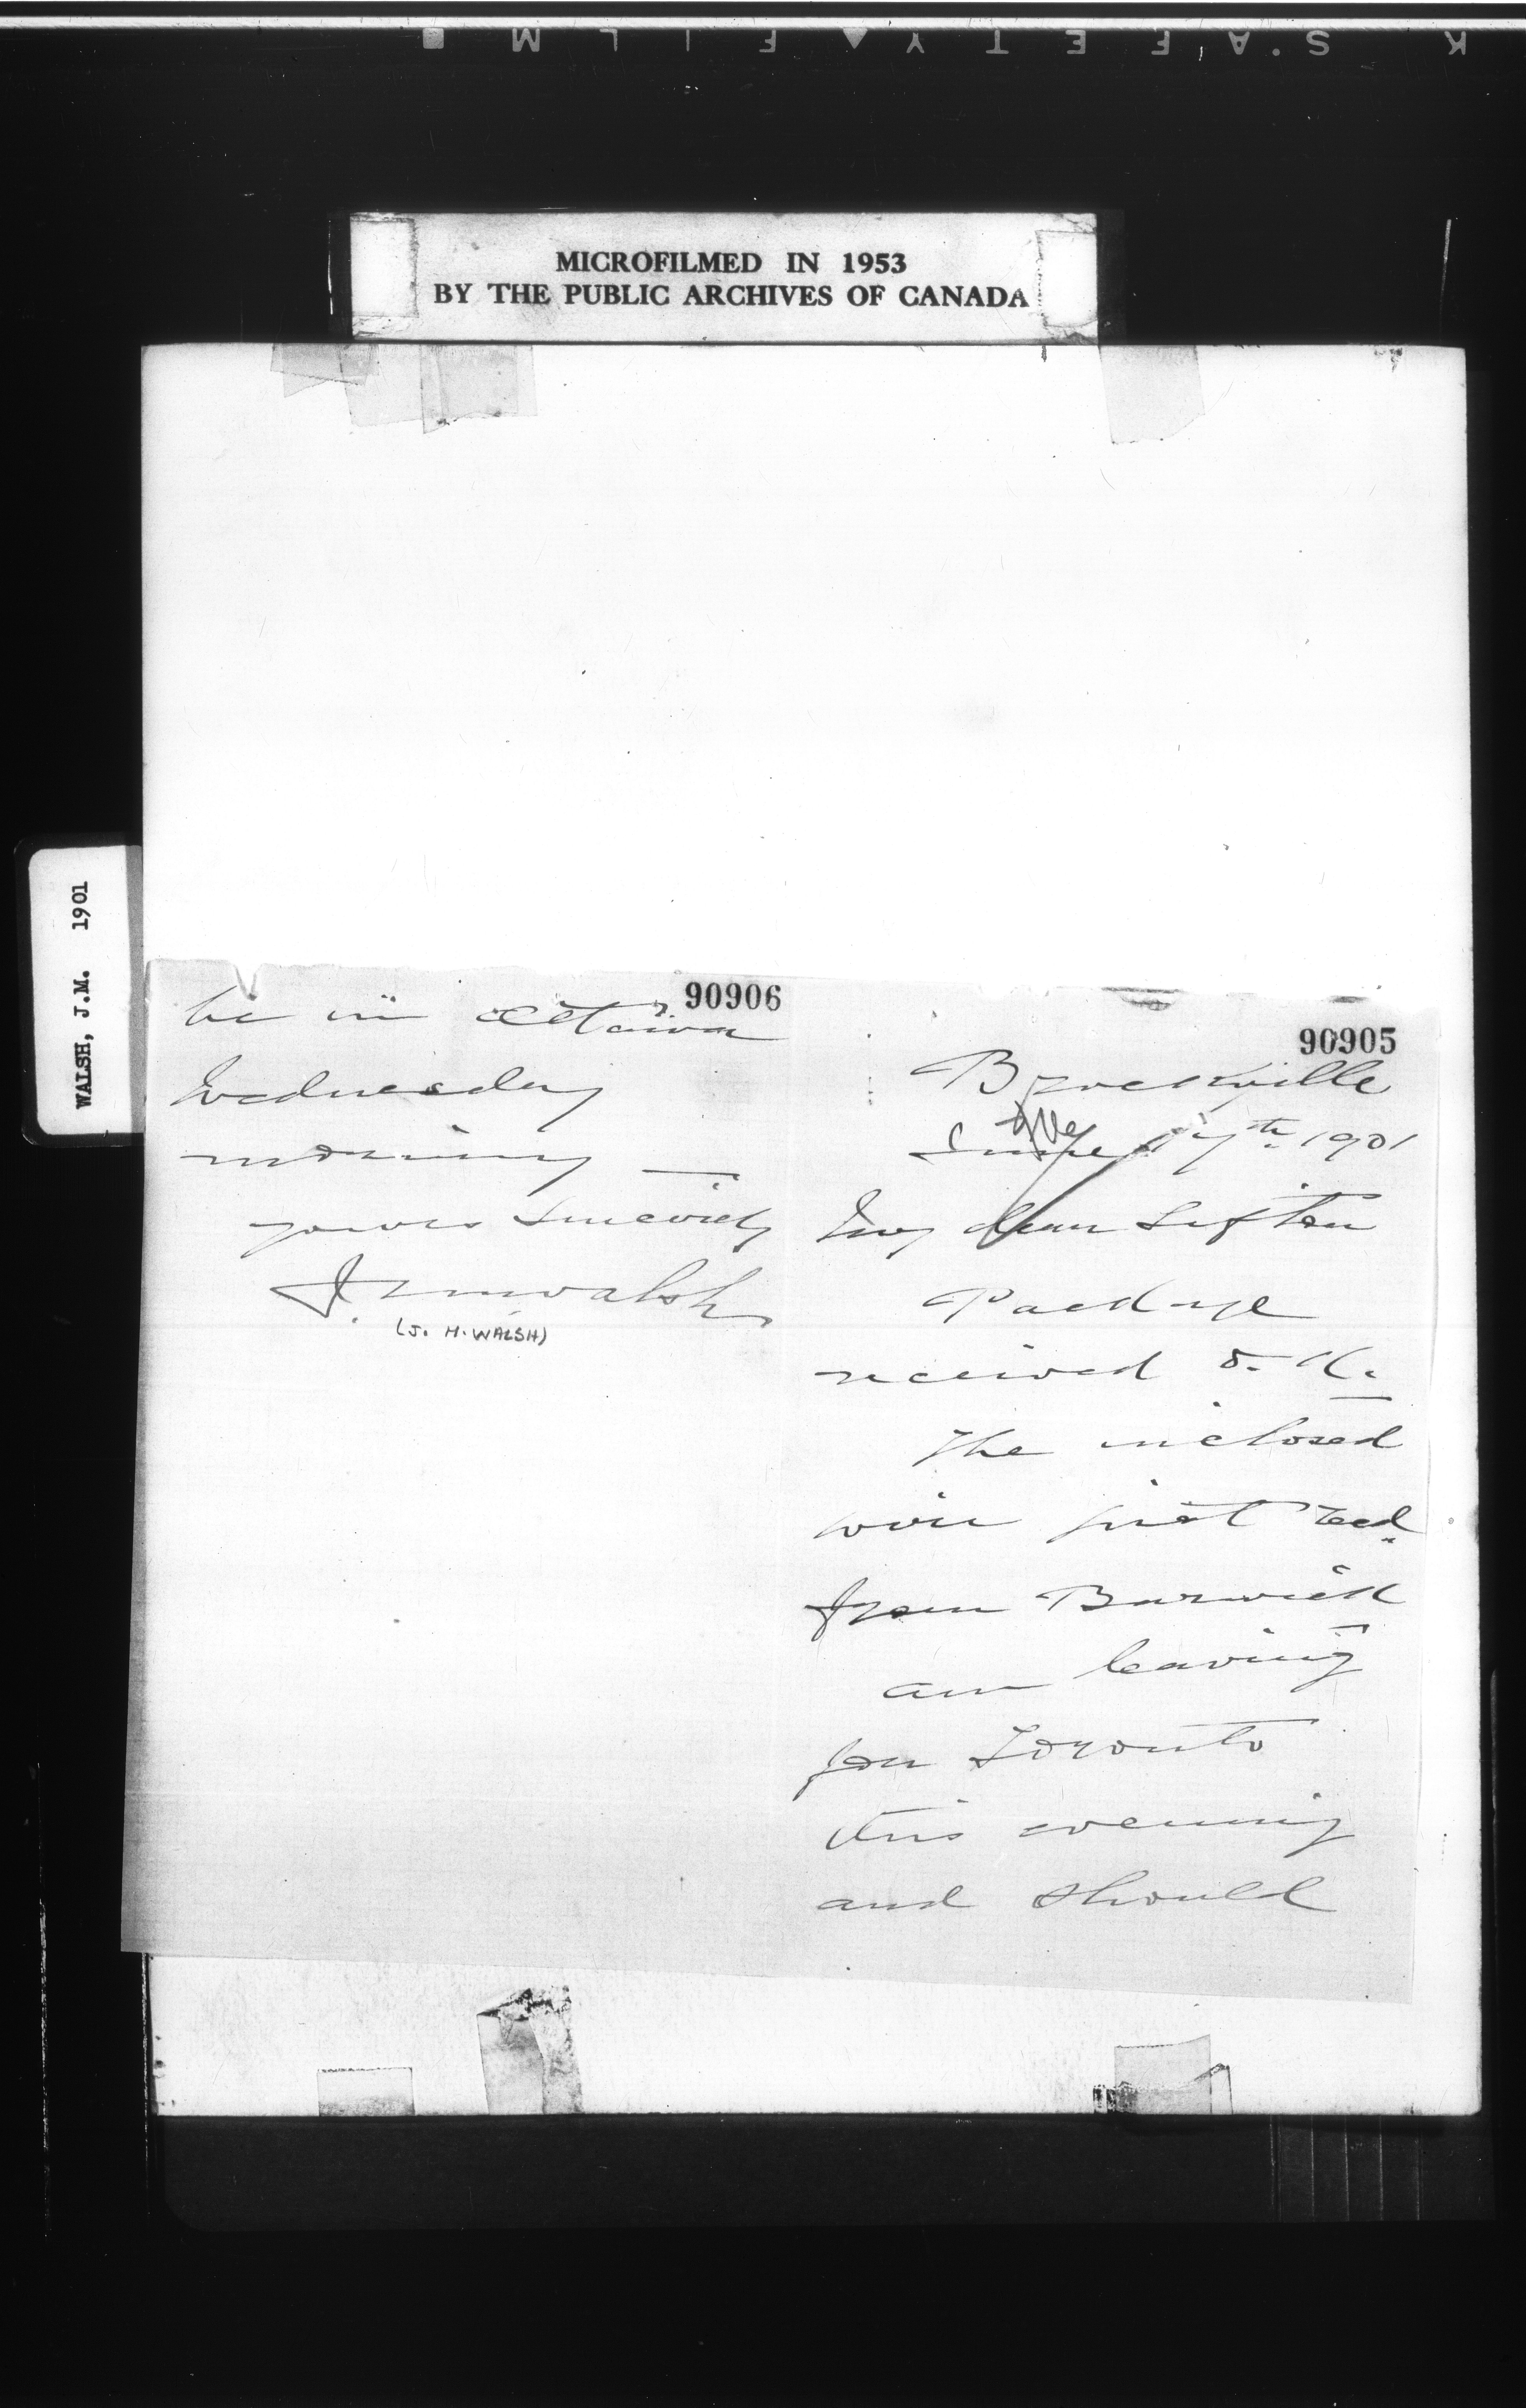 K S.AFETY FILM
MICROFILMED IN 1953
BY THE PUBLIC ARCHIVES OF CANADA
WALSH, J.M. 1901
90905
Brockville
June 17th 1901
My dear Sifton
Package
received O.K.
The inclosed
wire just recd
from Barwick
am leaving
for Toronto
this evening
and should
90906
be in Ottawa
Wednesday
morning —
yours sincerely
J M Walsh
(J. M. WALSH)